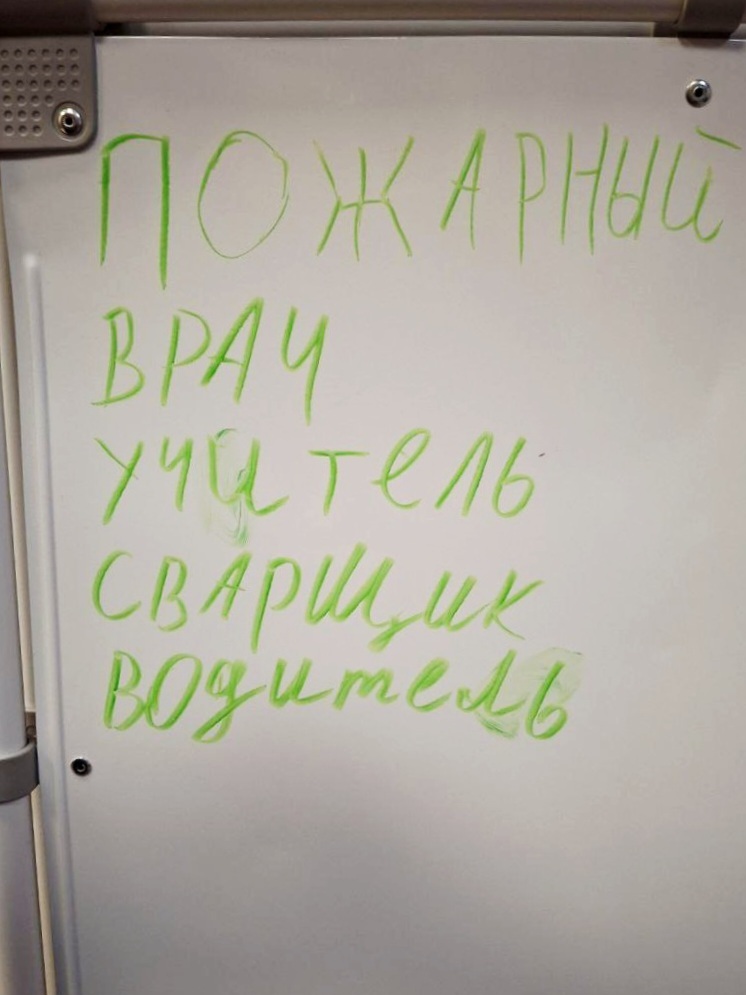 ПОЖАРНЫЙ
ВРАЧ
УЧИТЕЛЬ
СВАРЩИК
ВОДИТЕЛЬ